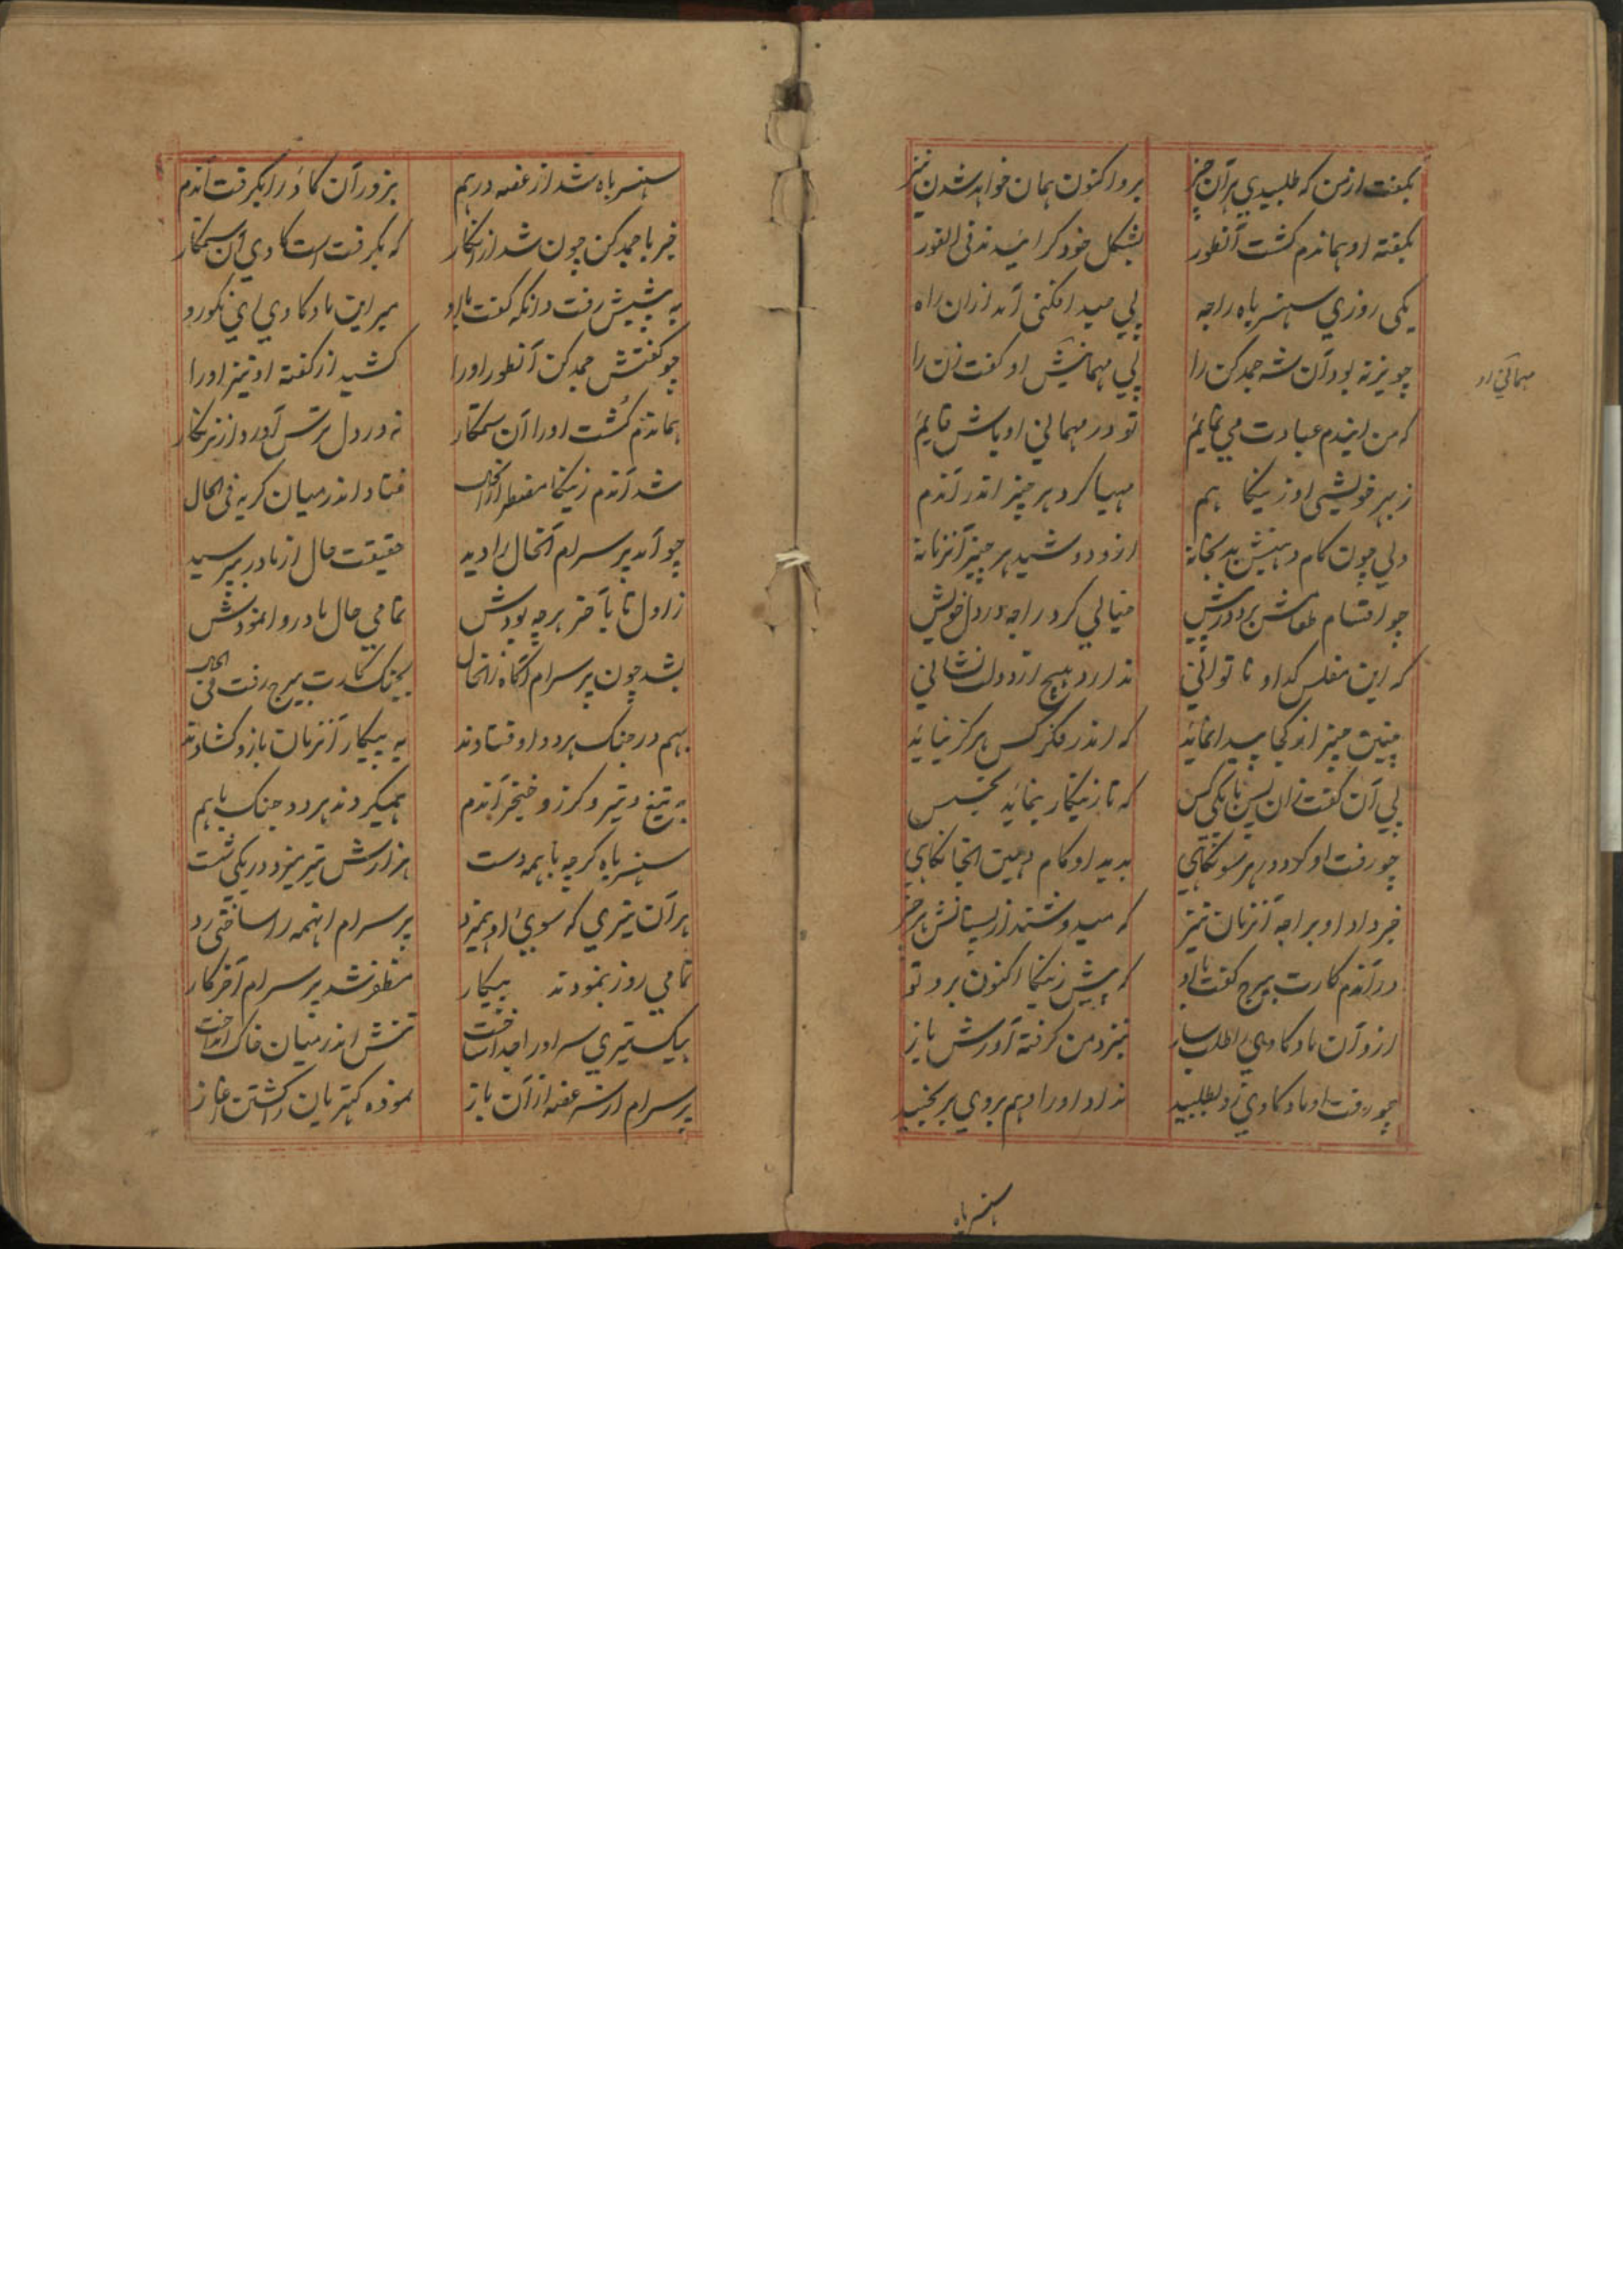 بگفت از من که طلبیدی هر آن چیز
برو اکنون همان خواهد شدن نیز
بگفته او هماندم گشت آنطور
بشکل خود گرائیدند فی الفور
یکی روزی سهنسر باه راجه
پی صید افکنی آمد ازان راه
چو نیزنه بود آن شه جمدکن را
پی مهمانیش او گفت زن را
که من ایندم عبادت می نمایم
تو در مهمانی او باش قایم
ز بهر خویشی او زینکا هم
مهیا کرد هر چیز اندر آندم
ولی چون کام دهینش بد بخانه
ازو دوشید هر چیز آنزمانه
چو اقسام طعامش برد در پیش
خیالی کرد راجه در دل خویش
که این مفلس گدا و ناتوانی
ندارد هیچ از دولت نشانی
چنین چیز از کجا پیدا نماید
که اندر فکر کس هرگز نیاید
پی آن گفت زان پس با یکی کس
که تا زینکار بنماید تجسس
چو رفت او کرد در هر سو نگاهی
بدید او کام دهین آنجا بگاهی
خبر داد او براجه آنزمان نیز
که میدوشند از پستانش هر چیز
در آندم کارت بیرج گفت با او
که پیش زینکا اکنون برو تو
ازو آن ماده گاوی را طلب ساز
بنزد من گرفته آورش باز
چو رفت او ماده گاوی زو طلبید
نداد او را و هم بروی برنجید
مهمانی او
سهنسر باه
سهنسر باه شد از غصه درهم
بزور آن گاو را بگرفت آندم
خبر با جمدکن چون شد از انکار
که بگرفت است گاوی آن ستمکار
به پیشش رفت وانگه گفت با او
مبر این ماده گاوی ای نکورو
چو گفتش جمدکن آنطور او را
کشید از گفته او تیز او را
هماندم کشت او را آن ستمکار
نه در دل ترس آورد از نزنکار
شد آندم زینکا مضطر از آنحال
فتاد اندر میان گریه فی الحال
چو آمد پرسرام آنحال را دید
حقیقت حال از مادر بپرسید
ز اول تا بآخر هرچه بودش
تمامی حال مادر وانمودش
بشد چون پرسرام آگاه زانحال
بجنگ کارت بیرج رفت فی الحال
بهم در جنگ هر دو اوفتادند
به پیکار آنزمان بازو گشادند
به تیغ و تیر و گرز و خنجر آندم
همیکردند هر دو جنگ با هم
سهنسر باه گرچه با همه دست
هزارش تیر میزد در یکی شست
هر آن تیری که سوی او همیزد
پرسرام اینهمه را ساختی رد
تمامی روز بنمودند پیکار
مظفر شد پرسرام آخر کار
بیک تیری سر او را جدا ساخت
تنش اندر میان خاک انداخت
پرسرام از سر غصه از آن باز
نموده کهتریان را کشتن آغاز